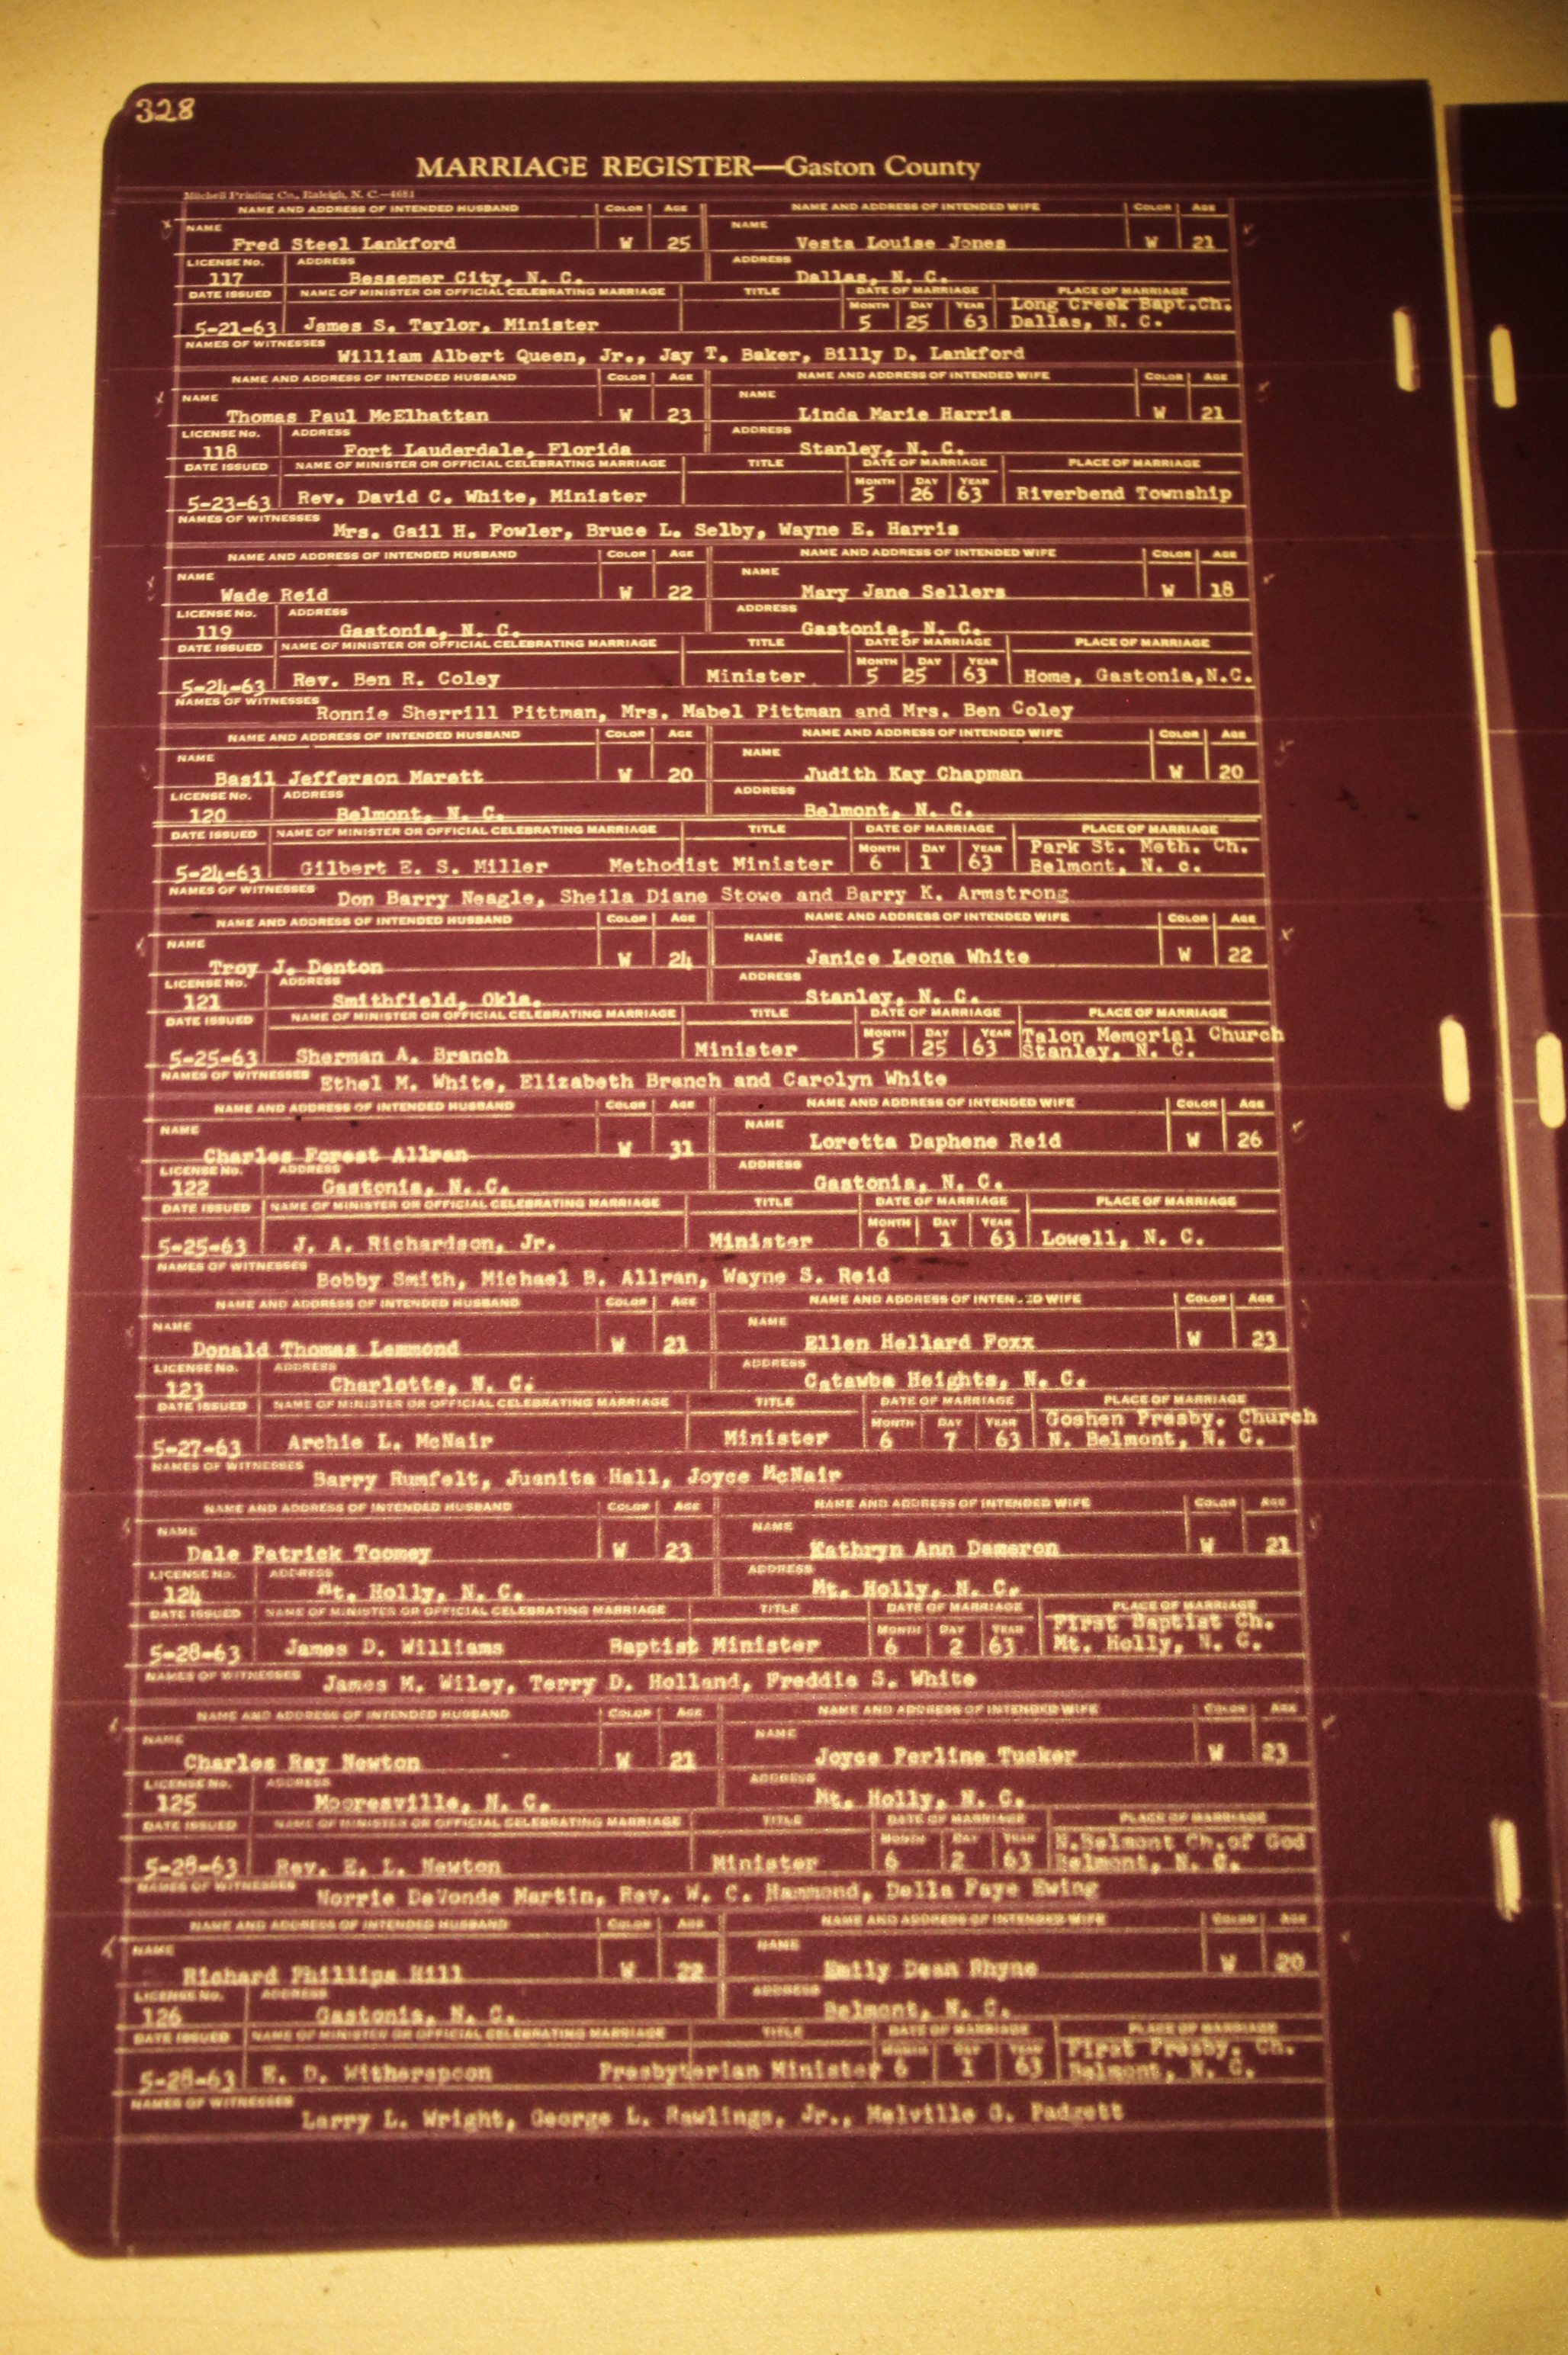 328
MARRIAGE REGISTER—Gaston County
Mitchell Printing Co., Raleigh, N. C.—4681
NAME AND ADDRESS OF INTENDED HUSBAND COLOR AGE NAME AND ADDRESS OF INTENDED WIFE COLOR AGE
NAME Fred Steel Lankford W 25 NAME Vesta Louise Jones W 21
LICENSE No. 117 ADDRESS Bessemer City, N. C. ADDRESS Dallas, N. C.
DATE ISSUED NAME OF MINISTER OR OFFICIAL CELEBRATING MARRIAGE TITLE DATE OF MARRIAGE PLACE OF MARRIAGE
MONTH DAY YEAR Long Creek Bapt.Ch.
5-21-63 James S. Taylor, Minister 5 25 63 Dallas, N. C.
NAMES OF WITNESSES William Albert Queen, Jr., Jay T. Baker, Billy D. Lankford
NAME AND ADDRESS OF INTENDED HUSBAND COLOR AGE NAME AND ADDRESS OF INTENDED WIFE COLOR AGE
NAME Thomas Paul McElhattan W 23 NAME Linda Marie Harris W 21
LICENSE No. 118 ADDRESS Fort Lauderdale, Florida ADDRESS Stanley, N. C.
DATE ISSUED NAME OF MINISTER OR OFFICIAL CELEBRATING MARRIAGE TITLE DATE OF MARRIAGE PLACE OF MARRIAGE
MONTH DAY YEAR
5-23-63 Rev. David C. White, Minister 5 26 63 Riverbend Township
NAMES OF WITNESSES Mrs. Gail H. Fowler, Bruce L. Selby, Wayne E. Harris
NAME AND ADDRESS OF INTENDED HUSBAND COLOR AGE NAME AND ADDRESS OF INTENDED WIFE COLOR AGE
NAME Wade Reid W 22 NAME Mary Jane Sellers W 18
LICENSE No. 119 ADDRESS Gastonia, N. C. ADDRESS Gastonia, N. C.
DATE ISSUED NAME OF MINISTER OR OFFICIAL CELEBRATING MARRIAGE TITLE DATE OF MARRIAGE PLACE OF MARRIAGE
MONTH DAY YEAR
5-24-63 Rev. Ben R. Coley Minister 5 25 63 Home, Gastonia,N.C.
NAMES OF WITNESSES Ronnie Sherrill Pittman, Mrs. Mabel Pittman and Mrs. Ben Coley
NAME AND ADDRESS OF INTENDED HUSBAND COLOR AGE NAME AND ADDRESS OF INTENDED WIFE COLOR AGE
NAME Basil Jefferson Marett W 20 NAME Judith Kay Chapman W 20
LICENSE No. 120 ADDRESS Belmont, N. C. ADDRESS Belmont, N. C.
DATE ISSUED NAME OF MINISTER OR OFFICIAL CELEBRATING MARRIAGE TITLE DATE OF MARRIAGE PLACE OF MARRIAGE
MONTH DAY YEAR Park St. Meth. Ch.
5-24-63 Gilbert E. S. Miller Methodist Minister 6 1 63 Belmont, N. c.
NAMES OF WITNESSES Don Barry Neagle, Sheila Diane Stowe and Barry K. Armstrong
NAME AND ADDRESS OF INTENDED HUSBAND COLOR AGE NAME AND ADDRESS OF INTENDED WIFE COLOR AGE
NAME Troy J. Denton W 24 NAME Janice Leona White W 22
LICENSE No. 121 ADDRESS Smithfield, Okla. ADDRESS Stanley, N. C.
DATE ISSUED NAME OF MINISTER OR OFFICIAL CELEBRATING MARRIAGE TITLE DATE OF MARRIAGE PLACE OF MARRIAGE
MONTH DAY YEAR Talon Memorial Church
5-25-63 Sherman A. Branch Minister 5 25 63 Stanley, N. C.
NAMES OF WITNESSES Ethel M. White, Elizabeth Branch and Carolyn White
NAME AND ADDRESS OF INTENDED HUSBAND COLOR AGE NAME AND ADDRESS OF INTENDED WIFE COLOR AGE
NAME Charles Forest Allran W 31 NAME Loretta Daphene Reid W 26
LICENSE No. 122 ADDRESS Gastonia, N. C. ADDRESS Gastonia, N. C.
DATE ISSUED NAME OF MINISTER OR OFFICIAL CELEBRATING MARRIAGE TITLE DATE OF MARRIAGE PLACE OF MARRIAGE
MONTH DAY YEAR
5-25-63 J. A. Richardson, Jr. Minister 6 1 63 Lowell, N. C.
NAMES OF WITNESSES Bobby Smith, Michael B. Allran, Wayne S. Reid
NAME AND ADDRESS OF INTENDED HUSBAND COLOR AGE NAME AND ADDRESS OF INTENDED WIFE COLOR AGE
NAME Donald Thomas Lemmond W 21 NAME Ellen Hellard Foxx W 23
LICENSE No. 123 ADDRESS Charlotte, N. C. ADDRESS Catawba Heights, N. C.
DATE ISSUED NAME OF MINISTER OR OFFICIAL CELEBRATING MARRIAGE TITLE DATE OF MARRIAGE PLACE OF MARRIAGE
MONTH DAY YEAR Goshen Presby. Church
5-27-63 Archie L. McNair Minister 6 7 63 N. Belmont, N. C.
NAMES OF WITNESSES Barry Rumfelt, Juanita Hall, Joyce McNair
NAME AND ADDRESS OF INTENDED HUSBAND COLOR AGE NAME AND ADDRESS OF INTENDED WIFE COLOR AGE
NAME Dale Patrick Toomey W 23 NAME Kathryn Ann Dameron W 21
LICENSE No. 124 ADDRESS Mt. Holly, N. C. ADDRESS Mt. Holly, N. C.
DATE ISSUED NAME OF MINISTER OR OFFICIAL CELEBRATING MARRIAGE TITLE DATE OF MARRIAGE PLACE OF MARRIAGE
MONTH DAY YEAR First Baptist Ch.
5-28-63 James D. Williams Baptist Minister 6 2 63 Mt. Holly, N. C.
NAMES OF WITNESSES James M. Wiley, Terry D. Holland, Freddie S. White
NAME AND ADDRESS OF INTENDED HUSBAND COLOR AGE NAME AND ADDRESS OF INTENDED WIFE COLOR AGE
NAME Charles Ray Newton W 21 NAME Joyce Ferline Tucker W 23
LICENSE No. 125 ADDRESS Mooresville, N. C. ADDRESS Mt. Holly, N. C.
DATE ISSUED NAME OF MINISTER OR OFFICIAL CELEBRATING MARRIAGE TITLE DATE OF MARRIAGE PLACE OF MARRIAGE
MONTH DAY YEAR N.Belmont Ch.of God
5-28-63 Rev. E. L. Newton Minister 6 2 63 Belmont, N. C.
NAMES OF WITNESSES Norrie DeVonde Martin, Rev. W. C. Hammond, Della Faye Ewing
NAME AND ADDRESS OF INTENDED HUSBAND COLOR AGE NAME AND ADDRESS OF INTENDED WIFE COLOR AGE
NAME Richard Phillips Hill W 22 NAME Emily Dean Rhyne W 20
LICENSE No. 126 ADDRESS Gastonia, N. C. ADDRESS Belmont, N. C.
DATE ISSUED NAME OF MINISTER OR OFFICIAL CELEBRATING MARRIAGE TITLE DATE OF MARRIAGE PLACE OF MARRIAGE
MONTH DAY YEAR First Presby. Ch.
5-28-63 E. D. Witherspoon Presbyterian Minister 6 1 63 Belmont, N. C.
NAMES OF WITNESSES Larry L. Wright, George L. Rawlings, Jr., Melville G. Padgett